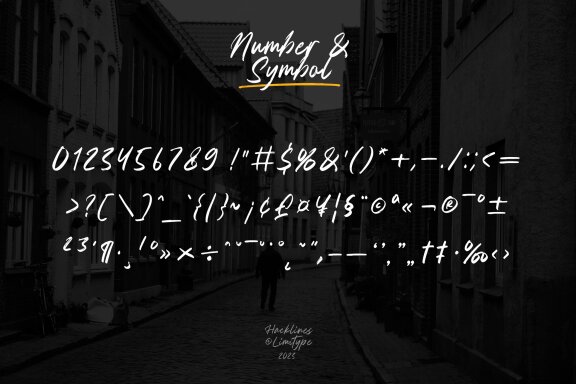 Number &
Symbol
0123456789 !"#$%&'()*+,-./:;<=
>?[\]^_`{|}~¡¢£¤¥¦§¨©ª«¬®¯°±
²³´¶·¸¹º»×÷ˆˇ˘˙˚˛˜˝‚–—‘’‚“”„†‡•‰‹›
Hacklines
©Limitype
2023